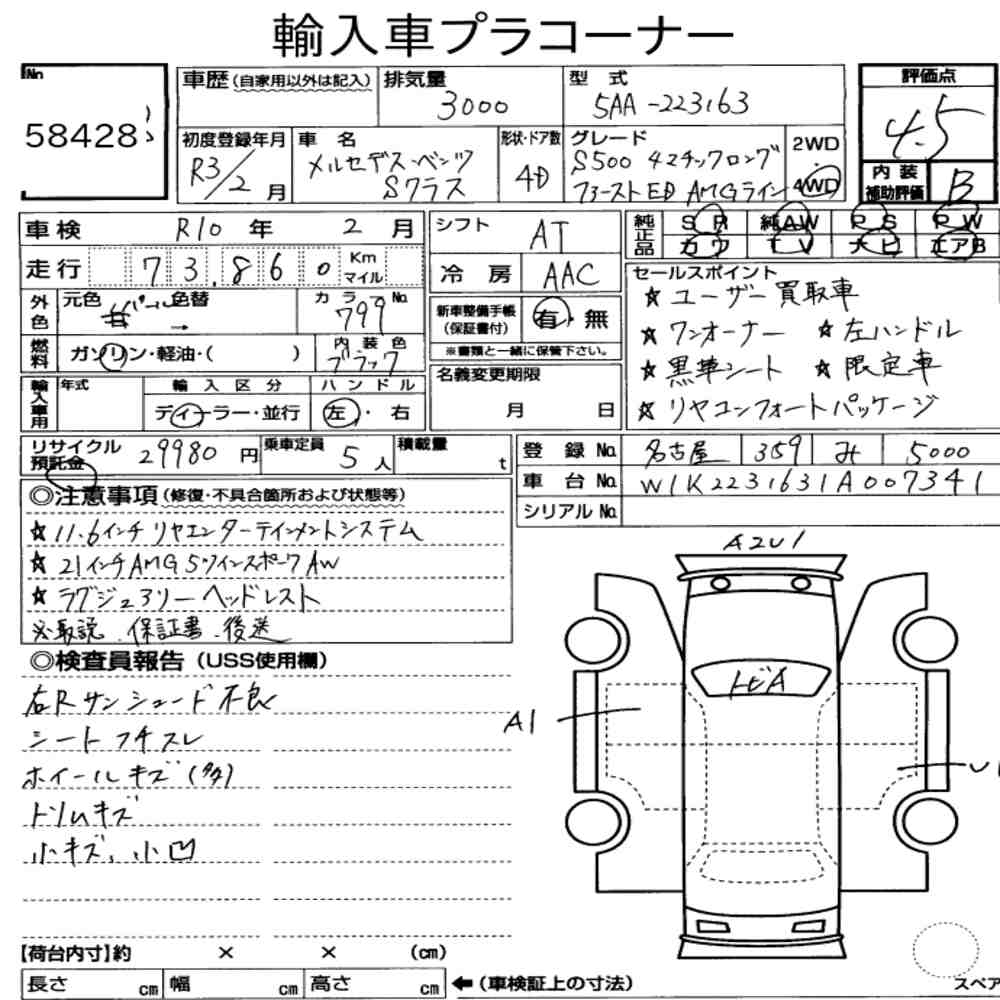 輸入車プラコーナー
No
58428
車歴 (自家用以外は記入)
排気量
3000
型式
5AA-223163
評価点
4.5
初度登録年月
R3/2月
車名
メルセデス・ベンツ
Sクラス
形状・ドア数
4D
グレード
S500 4マチックロング
ファーストED AMGライン
2WD
・
4WD
内装
補助評価
B
車検
R10年 2月
シフト
AT
純正品
SR
純AW
RS
RW
カワ
TV
ナビ
エアB
走行
73,860
Km
マイル
冷房
AAC
セールスポイント
☆ユーザー買取車
☆ワンオーナー ☆左ハンドル
☆黒革シート ☆限定車
☆リヤコンフォートパッケージ
外色
元色
色替
パール
→
カラーNo
799
新車整備手帳
(保証書付)
有・無
※書類と一緒に保管下さい。
燃料
ガソリン・軽油・( )
内装色
ブラック
名義変更期限
月 日
輸入車用
年式
輸入区分
ディーラー・並行
ハンドル
左・右
リサイクル
預託金
29980円
乗車定員
5人
積載量
t
登録No
名古屋 359 み 5000
車台No
W1K2231631A007341
シリアルNo
◎注意事項 (修復・不具合箇所および状態等)
☆11.6インチリヤエンターテインメントシステム
☆21インチAMG5ツインスポークAW
☆ラグジュアリーヘッドレスト
※取説、保証書、後送
◎検査員報告 (USS使用欄)
右Rサンシェード不良
シートフチスレ
ホイールキズ(多)
トリムキズ
小キズ、小凹
A2U1
トビA
A1
U1
【荷台内寸】約 × × (cm)
長さ cm 幅 cm 高さ cm
←(車検証上の寸法)
スペア